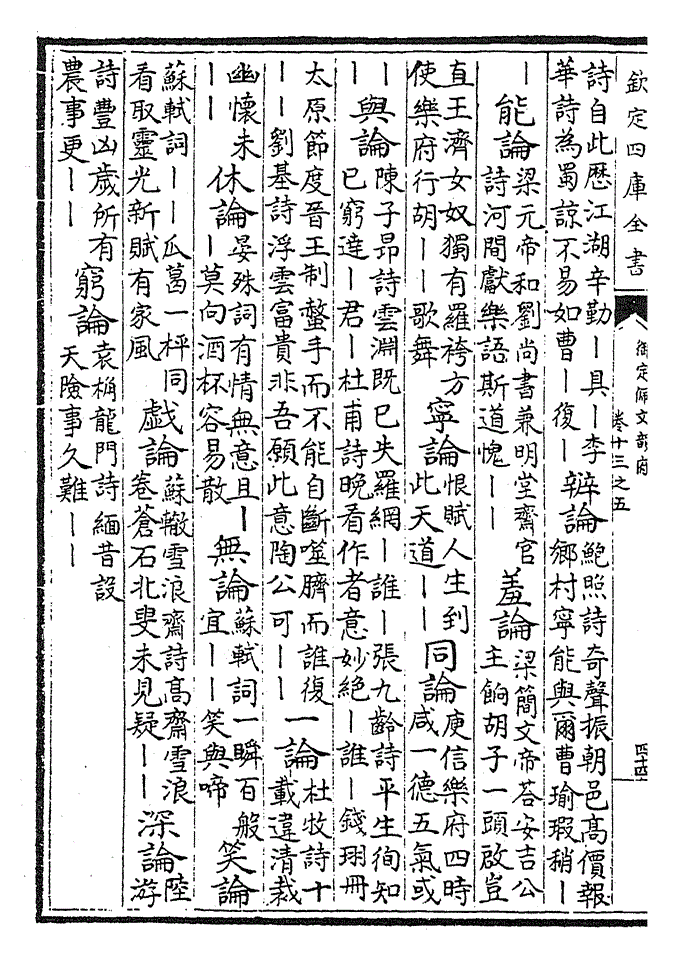 欽定四庫全書
御定佩文韻府
卷十三之五
四十四
詩自此歷江湖辛勤丨具丨李
華詩為蜀諒不易如曹丨復丨
辯論
鮑照詩奇聲振朝邑高價報
鄉村寧能與爾曹瑜瑕稍丨
丨
能論
梁元帝和劉尚書兼明堂齋官
詩河間獻樂語斯道愧丨丨
羞論
梁簡文帝荅安吉公
主餉胡子一頭啟豈
直王濟女奴獨有羅袴方
使樂府行胡丨丨歌舞
寧論
恨賦人生到
此天道丨丨
同論
庾信樂府四時
咸一德五氣或
丨
丨
與論
陳子昻詩雲淵既已失羅網丨誰丨張九齡詩平生徇知
已窮達丨君丨杜甫詩晚看作者意妙絶丨誰丨錢珝冊
太原節度晉王制螫手而不能自斷噬臍而誰復
丨丨劉基詩浮雲富貴非吾願此意陶公可丨丨
一論
杜牧詩十
載違清裁
幽懷未
丨丨
休論
晏殊詞有情無意且丨
丨莫向酒杯容易散
無論
蘇軾詞一瞬百般
宜丨丨笑與啼
笑論
蘇軾詞丨丨瓜葛一枰同
看取靈光新賦有家風
戯論
蘇轍雪浪齋詩髙齋雪浪
卷蒼石北叟未見疑丨丨
深論
陸
游
詩豐凶歲所有
農事更丨丨
窮論
袁桷龍門詩緬昔設
天險事久難丨丨